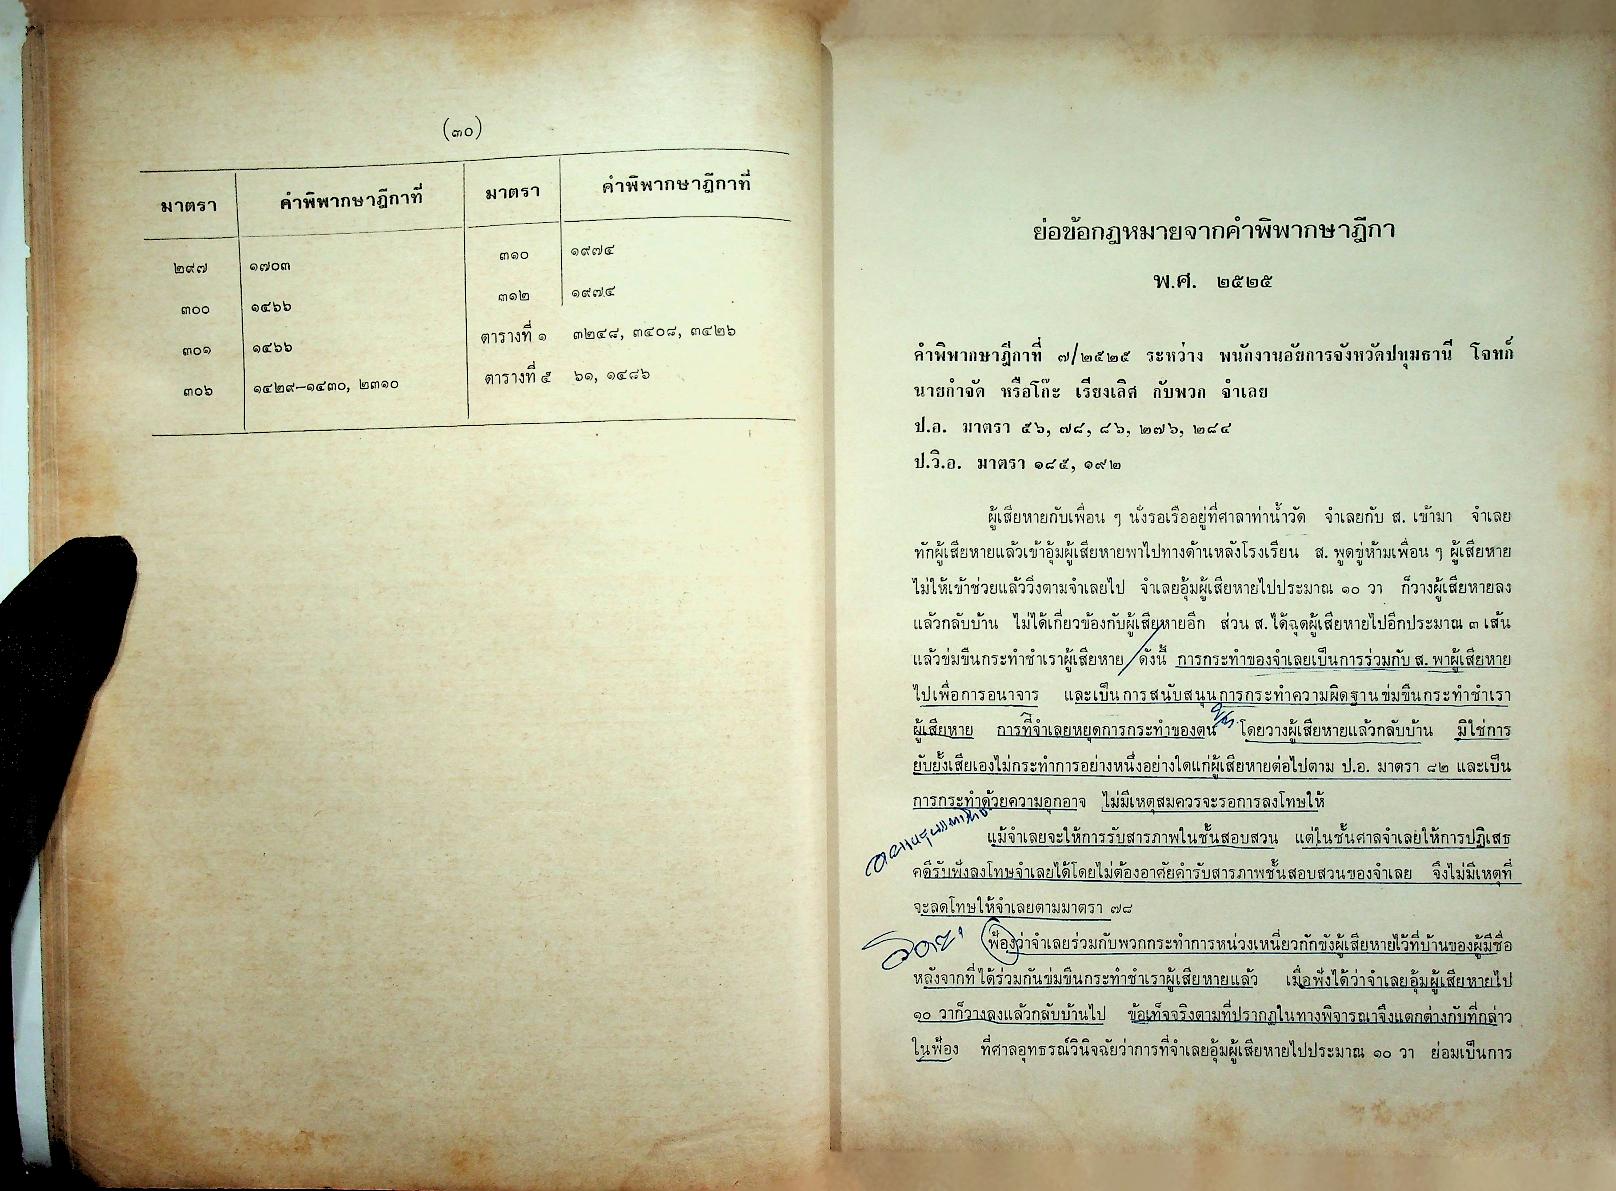 (๓๐)
มาตรา คำพิพากษาฎีกาที่ มาตรา คำพิพากษาฎีกาที่
๒๙๗ ๑๗๐๓ ๓๑๐ ๑๙๗๔
๓๐๐ ๑๔๖๖ ๓๑๒ ๑๙๗๔
๓๐๑ ๑๔๖๖ ตารางที่ ๑ ๓๒๔๘, ๓๔๐๘, ๓๔๒๖
๓๐๖ ๑๔๒๙–๑๔๓๐, ๒๓๑๐ ตารางที่ ๕ ๖๑, ๑๔๘๖
ย่อข้อกฎหมายจากคำพิพากษาฎีกา
พ.ศ. ๒๕๒๕
คำพิพากษาฎีกาที่ ๗/๒๕๒๕ ระหว่าง พนักงานอัยการจังหวัดปทุมธานี โจทก์
นายกำจัด หรือโก๊ะ เรียงเลิศ กับพวก จำเลย
ป.อ. มาตรา ๕๖, ๗๘, ๘๖, ๒๗๖, ๒๘๔
ป.วิ.อ. มาตรา ๑๘๕, ๑๙๒
ผู้เสียหายกับเพื่อน ๆ นั่งรอเรืออยู่ที่ศาลาท่าน้ำวัด จำเลยกับ ส. เข้ามา จำเลย
ทักผู้เสียหายแล้วเข้าอุ้มผู้เสียหายพาไปทางด้านหลังโรงเรียน ส. พูดขู่ห้ามเพื่อน ๆ ผู้เสียหาย
ไม่ให้เข้าช่วยแล้ววิ่งตามจำเลยไป จำเลยอุ้มผู้เสียหายไปประมาณ ๑๐ วา ก็วางผู้เสียหายลง
แล้วกลับบ้าน ไม่ได้เกี่ยวข้องกับผู้เสียหายอีก ส่วน ส. ได้ฉุดผู้เสียหายไปอีกประมาณ ๓ เส้น
แล้วข่มขืนกระทำชำเราผู้เสียหาย ดังนี้ การกระทำของจำเลยเป็นการร่วมกับ ส. พาผู้เสียหาย
ไปเพื่อการอนาจาร และเป็นการสนับสนุนการกระทำความผิดฐานข่มขืนกระทำชำเรา
ผู้เสียหาย การที่จำเลยหยุดการกระทำของตน โดยวางผู้เสียหายแล้วกลับบ้าน มิใช่การ
ยับยั้งเสียเองไม่กระทำการอย่างหนึ่งอย่างใดแก่ผู้เสียหายต่อไปตาม ป.อ. มาตรา ๘๒ และเป็น
การกระทำด้วยความอุกอาจ ไม่มีเหตุสมควรจะรอการลงโทษให้
แม้จำเลยจะให้การรับสารภาพในชั้นสอบสวน แต่ในชั้นศาลจำเลยให้การปฏิเสธ
คดีรับฟังลงโทษจำเลยได้โดยไม่ต้องอาศัยคำรับสารภาพชั้นสอบสวนของจำเลย จึงไม่มีเหตุที่
จะลดโทษให้จำเลยตามมาตรา ๗๘
ฟ้องว่าจำเลยร่วมกับพวกกระทำการหน่วงเหนี่ยวกักขังผู้เสียหายไว้ที่บ้านของผู้มีชื่อ
หลังจากที่ได้ร่วมกันข่มขืนกระทำชำเราผู้เสียหายแล้ว เมื่อฟังได้ว่าจำเลยอุ้มผู้เสียหายไป
๑๐ วาก็วางลงแล้วกลับบ้านไป ข้อเท็จจริงตามที่ปรากฏในทางพิจารณาจึงแตกต่างกับที่กล่าว
ในฟ้อง ที่ศาลอุทธรณ์วินิจฉัยว่าการที่จำเลยอุ้มผู้เสียหายไปประมาณ ๑๐ วา ย่อมเป็นการ